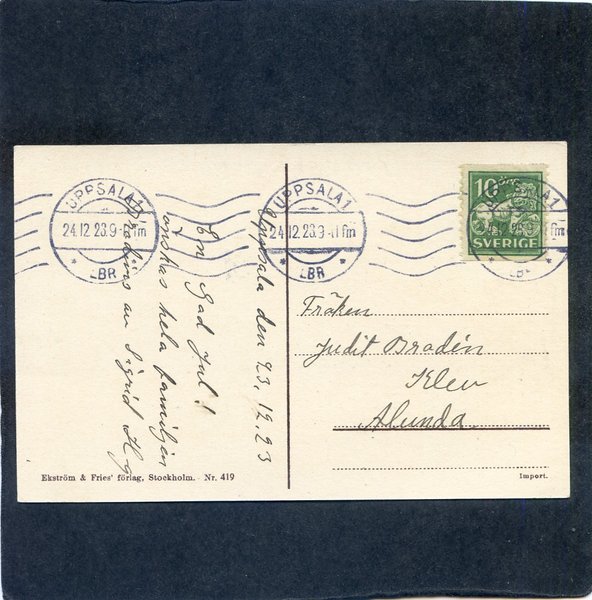 UPPSALA 1
24.12 23.9-11 fm
* LBR *
UPPSALA 1
24.12 23.9-11 fm
* LBR *
10 öre
SVERIGE
Uppsala den 23.12.23
En God Jul!
önskas hela familjen
Bradéns av Sigrid Hg
Fröken
Judit Bradén
Klev
Alunda
Ekström & Fries' förlag, Stockholm. Nr. 419
Import.